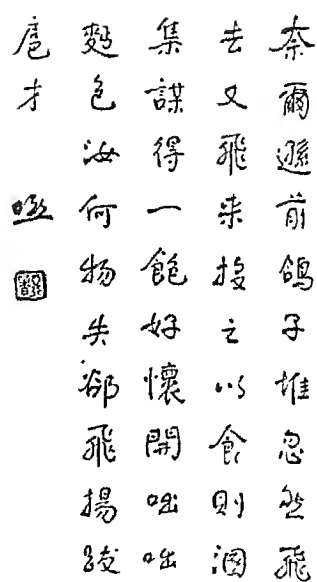 奈爾遜前鴿子堆忽然飛
去又飛来投之以食則洄
集謀得一飽好懷開咄咄
麴色汝何物失卻飛揚跋
扈才